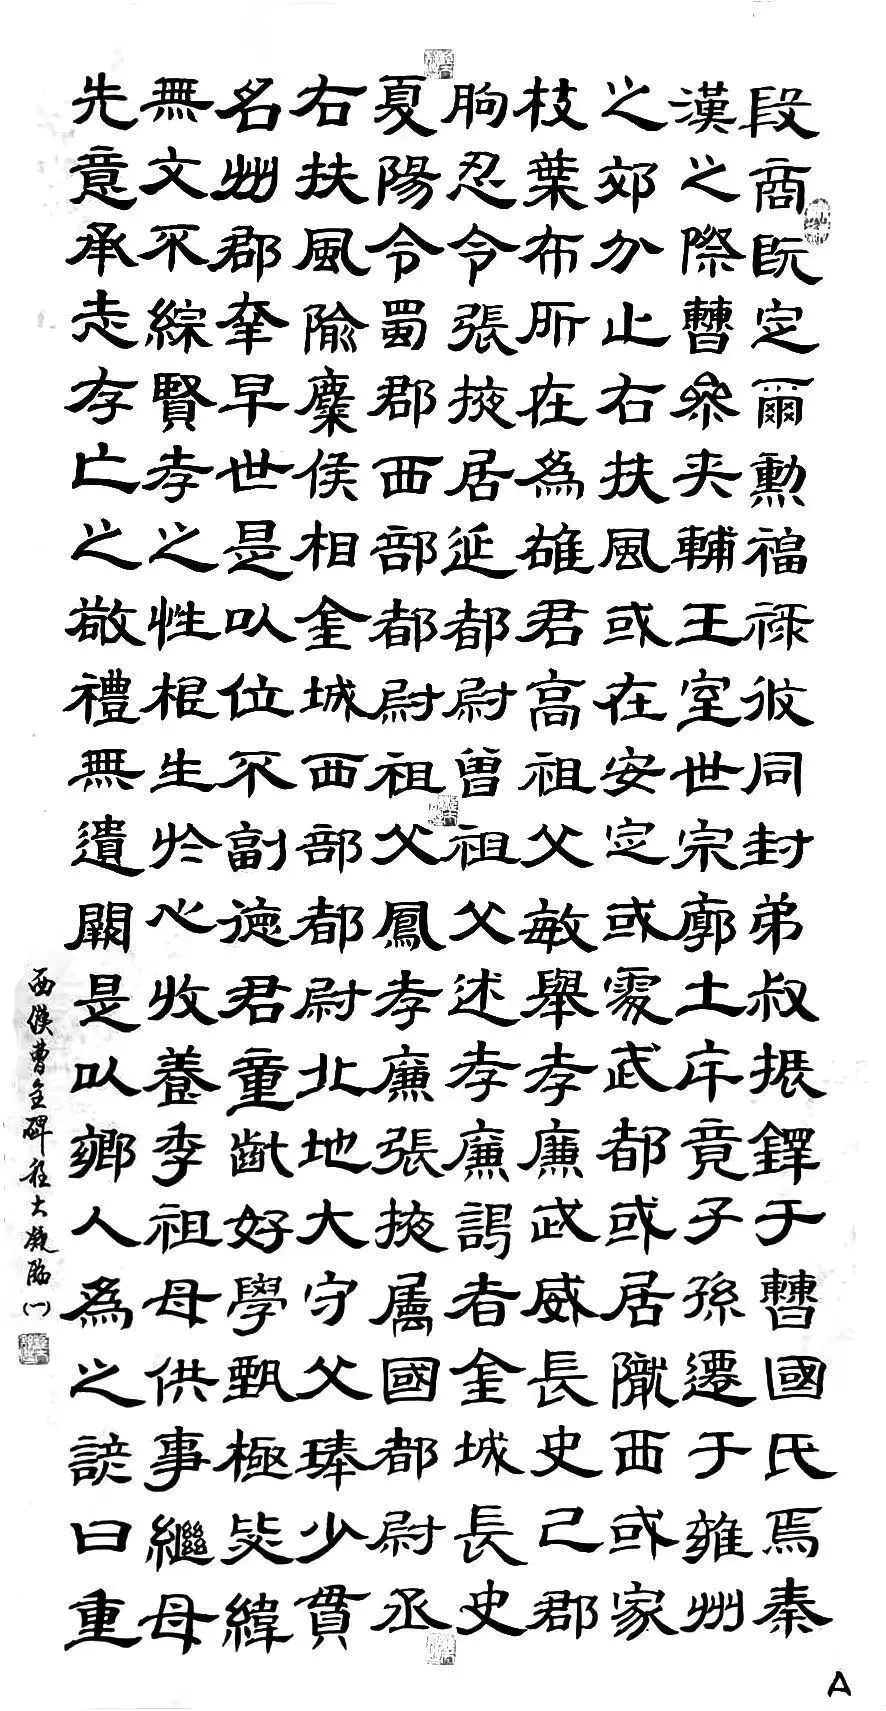 段商既定爾勲福祿攸同封弟叔振鐸于曹國氏焉秦
漢之際曹參夾輔王室世宗廓土斥竟子孫遷于雍州
之郊分止右扶風或在安定或處武都或居隴西或家
枝葉布所在為雄君高祖父敏舉孝廉武威長史巳郡
朐忍令張掖居延都尉曾祖父述孝廉謁者金城長史
夏陽令蜀郡西部都尉祖父鳳孝廉張掖屬國都尉丞
右扶風隃麋侯相金城西部都尉北地大守父琫少貫
名州郡不幸早世是以位不副德君童齔好學甄極毖緯
無文不綜賢孝之性根生於心收養季祖母供事繼母
先意承志存亡之敬禮無遺闕是以鄉人為之諺曰重
西漢曹全碑 大 臨
A